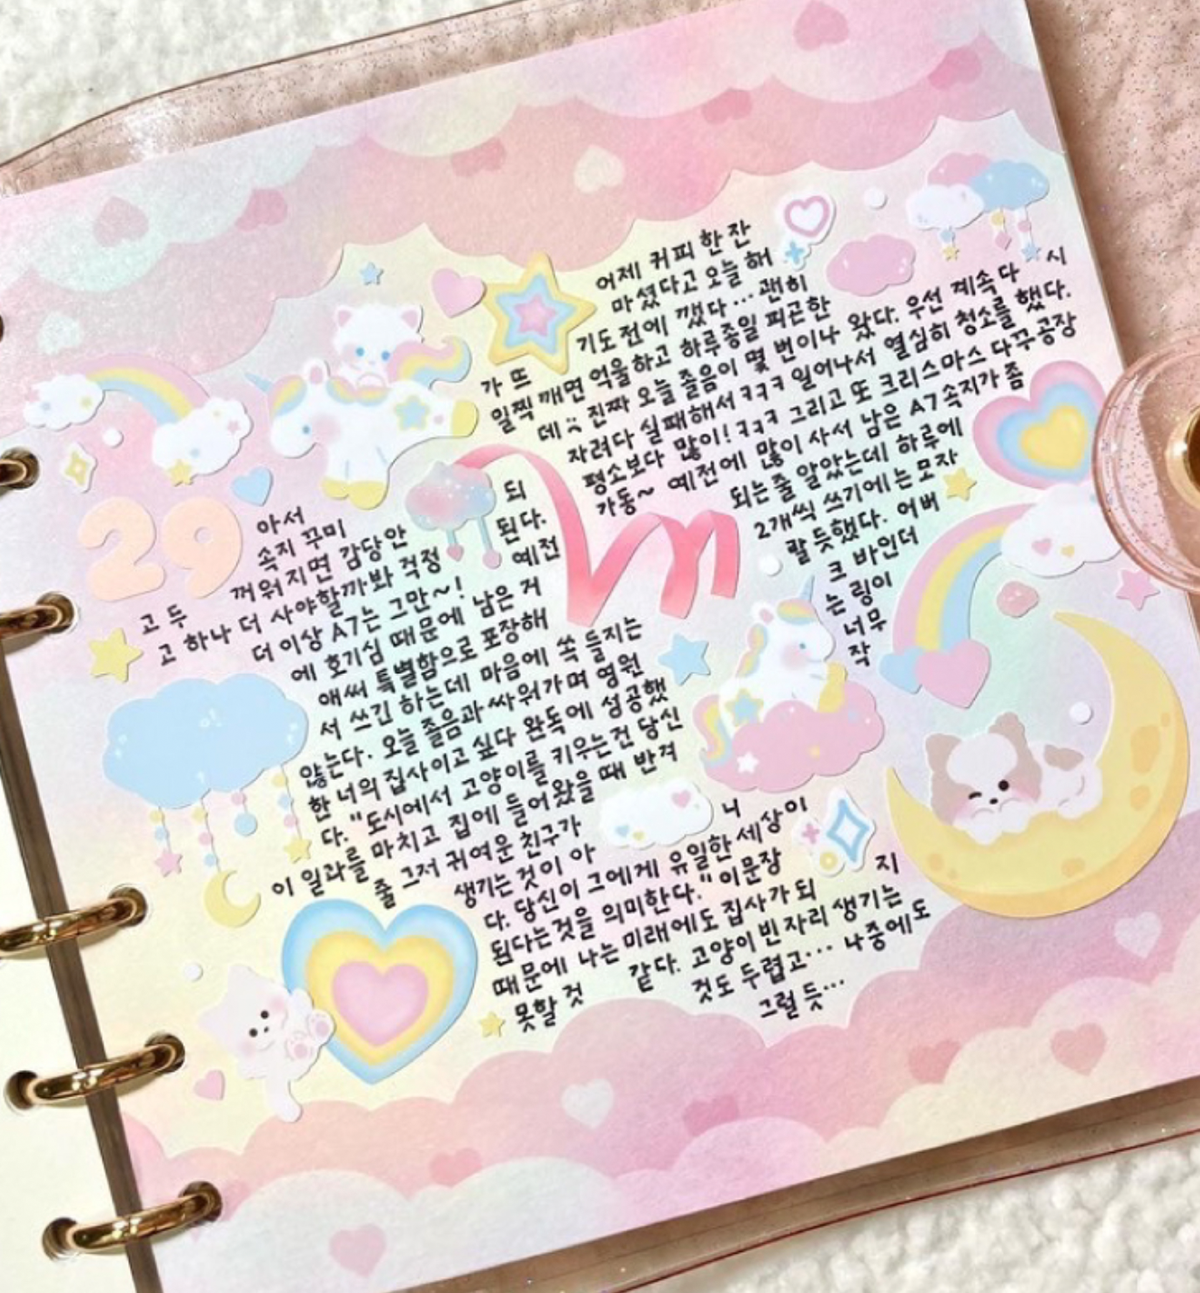 29
어제 커피 한 잔
마셨다고 오늘 해
가 뜨기도 전에 깼다... 괜히
일찍 깨면 억울하고 하루종일 피곤한
데;; 진짜 오늘 졸음이 몇 번이나 왔다. 우선 계속 다시
자려다 실패해서 ㅋㅋㅋ 일어나서 열심히 청소를 했다.
평소보다 많이! ㅋㅋㅋ 그리고 또 크리스마스 다꾸 공장
가동~ 예전에 많이 사서 남은 A7 속지가 좀
되는 줄 알았는데 하루에
2개씩 쓰기에는 모자
랄 듯했다. 어버
크 바인더
는 링이
너무
작
아서
속지 꾸미
고 두꺼워지면 감당안 되
고 하나 더 사야할까봐 걱정 된다.
더 이상 A7는 그만~! 예전
에 호기심 때문에 남은 거
애써 특별함으로 포장해
서 쓰긴 하는데 마음에 쏙 들지는
않는다. 오늘 졸음과 싸워가며 영원
한 너의 집사이고 싶다 완독에 성공했
다. "도시에서 고양이를 키우는건 당신
이 일과를 마치고 집에 들어왔을 때 반겨
줄 그저 귀여운 친구가
생기는 것이 아니
다. 당신이 그에게 유일한 세상이
된다는 것을 의미한다." 이 문장
때문에 나는 미래에도 집사가 되지
못할 것 같다. 고양이 빈자리 생기는
것도 두렵고... 나중에도
그럴 듯...